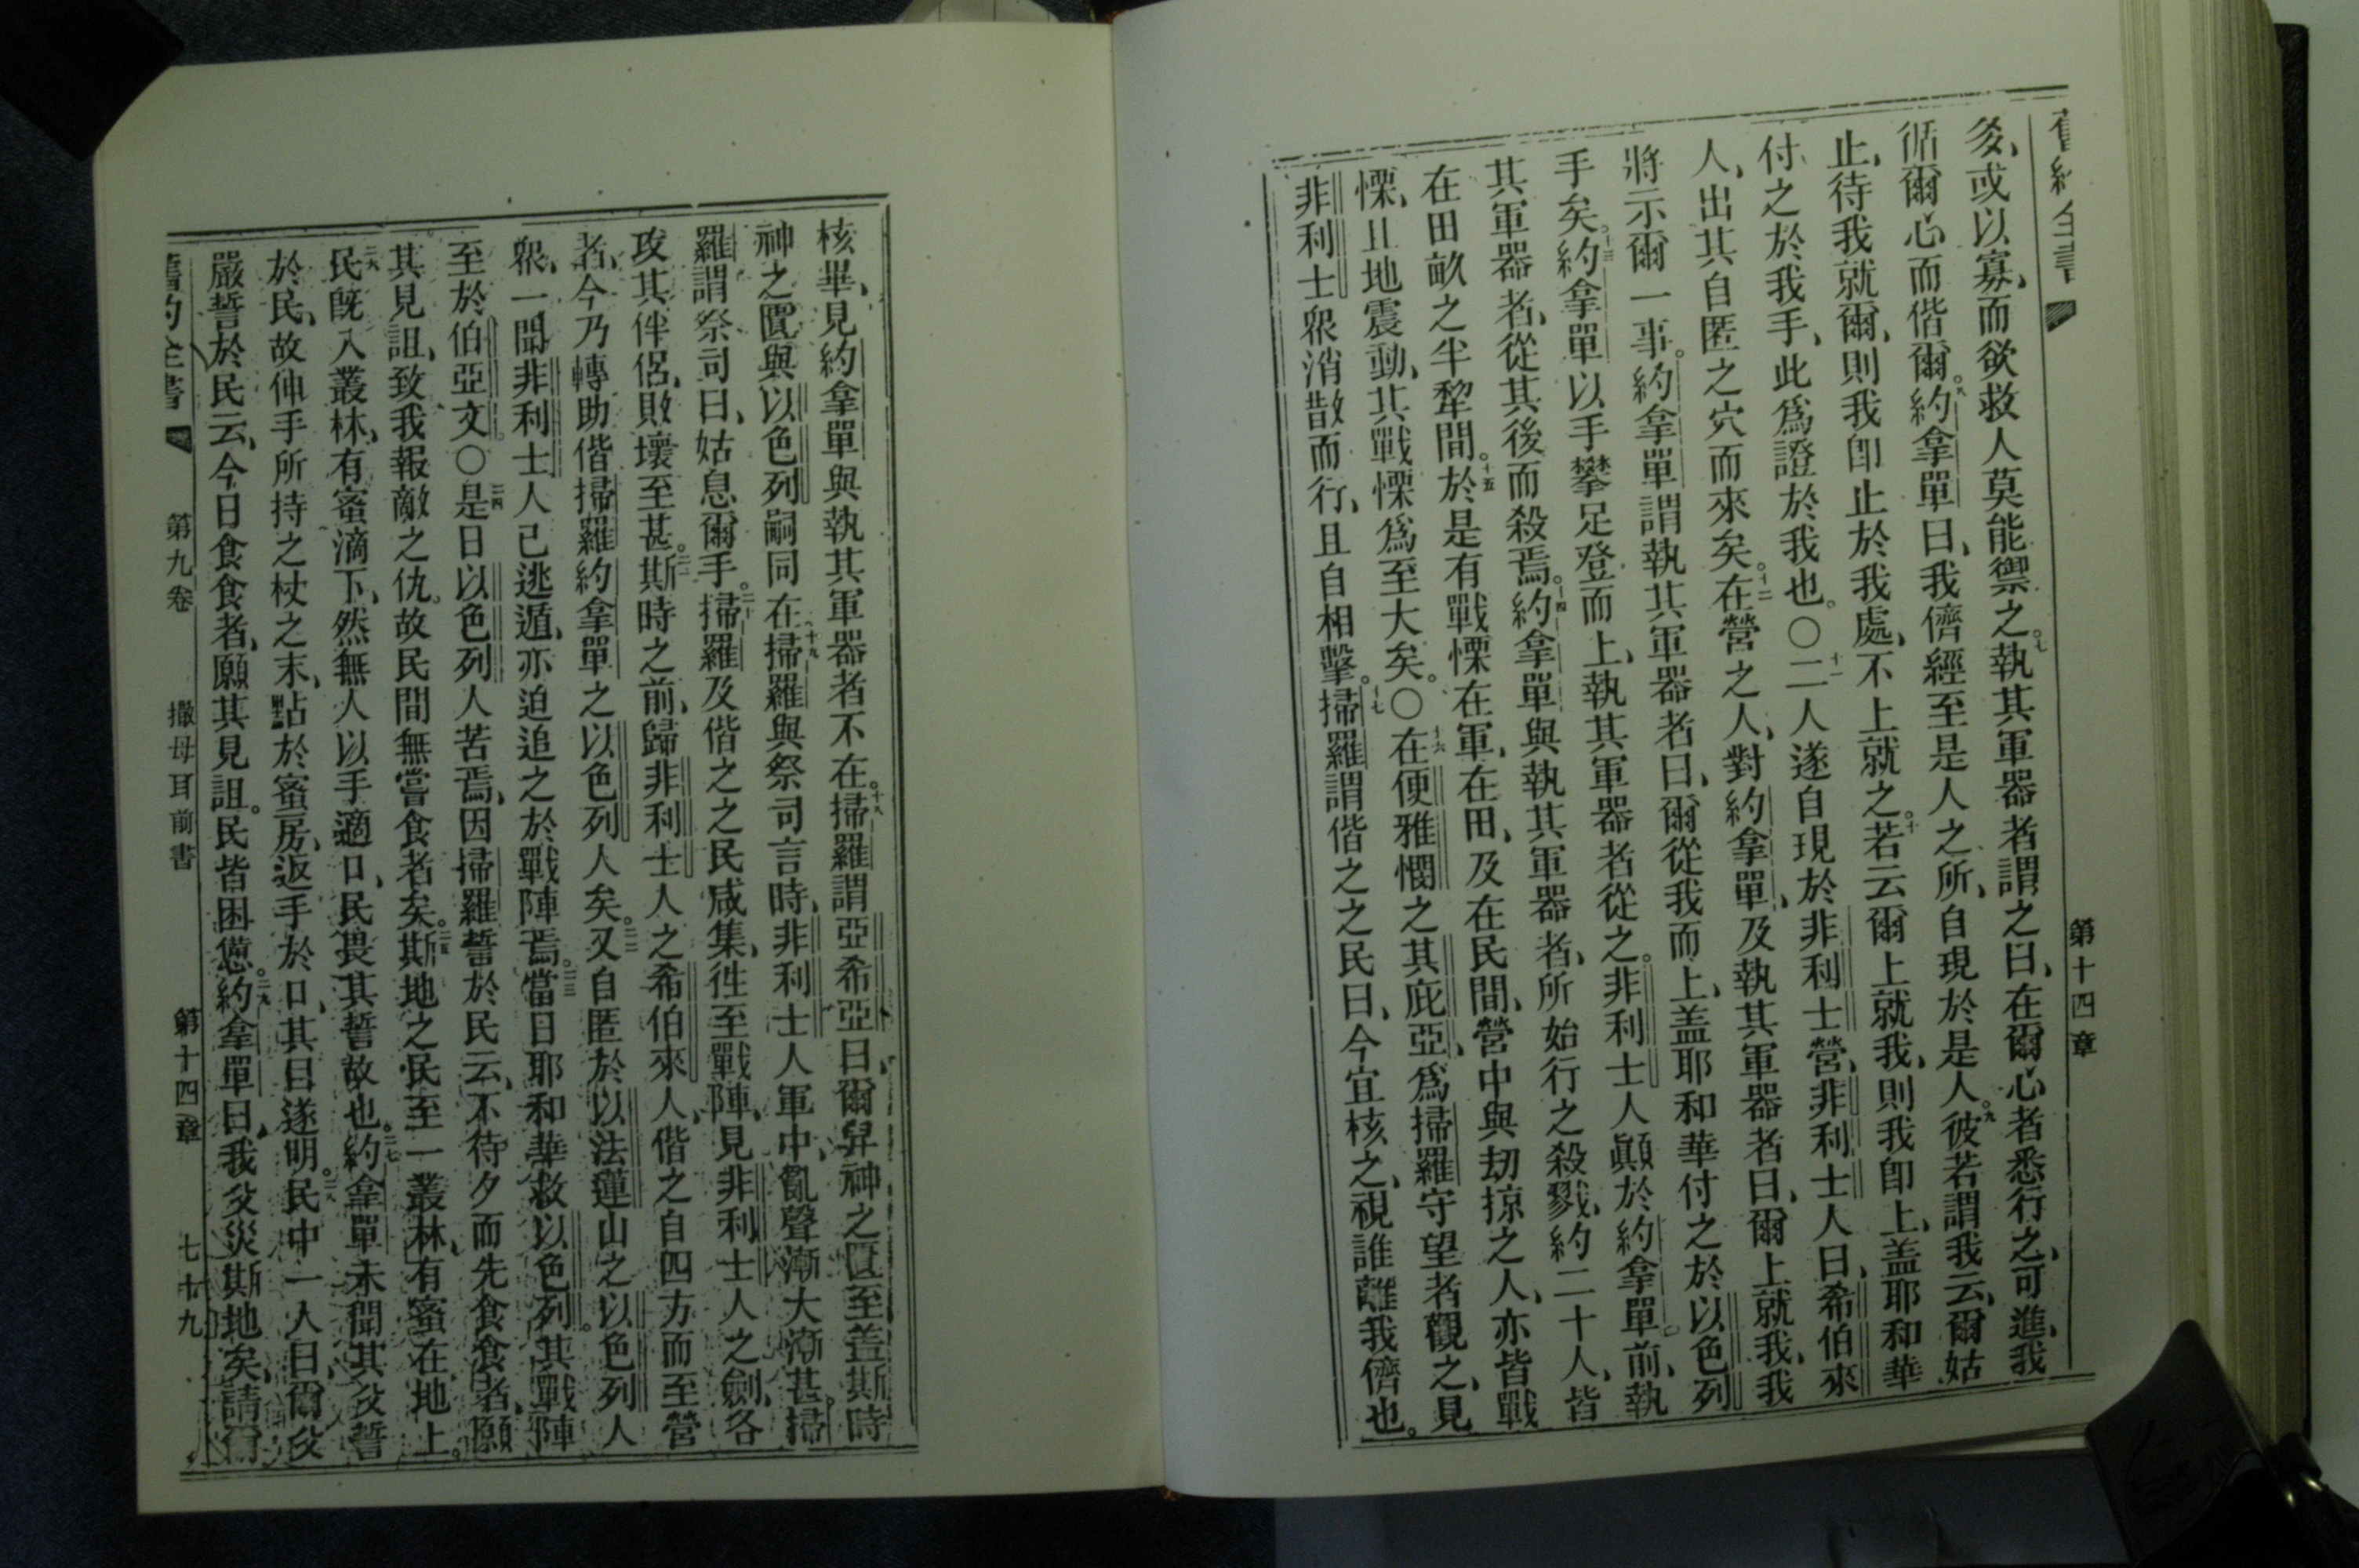 舊約全書
第十四章
多、或以寡、而欲救人莫能禦之。七執其軍器者謂之曰、在爾心者悉行之、可進、我
循爾心而偕爾。八約拿單曰、我儕經至是人之所、自現於是人。九彼若謂我云、爾姑
止、待我就爾、則我卽止於我處、不上就之。十若云爾上就我、則我卽上、盖耶和華
付之於我手、此爲證於我也。〇十一二人遂自現於非利士營、非利士人曰、希伯來
人、出其自匿之穴而來矣。十二在營之人、對約拿單、及執其軍器者曰、爾上就我、我
將示爾一事。約拿單謂執其軍器者曰、爾從我而上、盖耶和華付之於以色列
手矣。十三約拿單以手攀足登而上、執其軍器者從之。非利士人顚於約拿單前、執
其軍器者、從其後而殺焉。十四約拿單與執其軍器者、所始行之殺戮、約二十人、皆
在田畝之半犂間。十五於是有戰慄在軍、在田、及在民間、營中與刧掠之人、亦皆戰
慄、且地震動、其戰慄爲至大矣。〇十六在便雅憫之其庇亞、爲掃羅守望者觀之、見
非利士衆消散而行、且自相擊。十七掃羅謂偕之之民曰、今宜核之、視誰離我儕也。
核畢、見約拿單與執其軍器者不在。十八掃羅謂亞希亞曰、爾舁神之匱至盖斯時
神之匱與以色列嗣同在。十九掃羅與祭司言時、非利士人軍中、亂聲漸大漸甚。掃
羅謂祭司曰、姑息爾手。二十掃羅及偕之之民咸集、徃至戰陣、見非利士人之劍、各
攻其伴侶、敗壞至甚。二一斯時之前、歸非利士人之希伯來人、偕之自四方而至營
者、今乃轉助偕掃羅約拿單之以色列人矣。二二又自匿於以法蓮山之以色列人
衆、一聞非利士人已逃遁、亦迫追之於戰陣焉。二三當日耶和華救以色列。其戰陣
至於伯亞文。〇二四是日以色列人苦焉、因掃羅誓於民云、不待夕而先食食者、願
其見詛、致我報敵之仇。故民間無嘗食者矣。二五斯地之民至一叢林、有蜜在地上。
二六民旣入叢林、有蜜滴下、然無人以手適口、民畏其誓故也。二七約拿單未聞其父誓
於民、故伸手所持之杖之末、點於蜜房、返手於口、其目遂明。二八民中一人曰、爾父
嚴誓於民云、今日食食者、願其見詛。民皆困憊。二九約拿單曰、我父災斯地矣、請爾
舊約全書
第九卷
撒母耳前書
第十四章
七十九